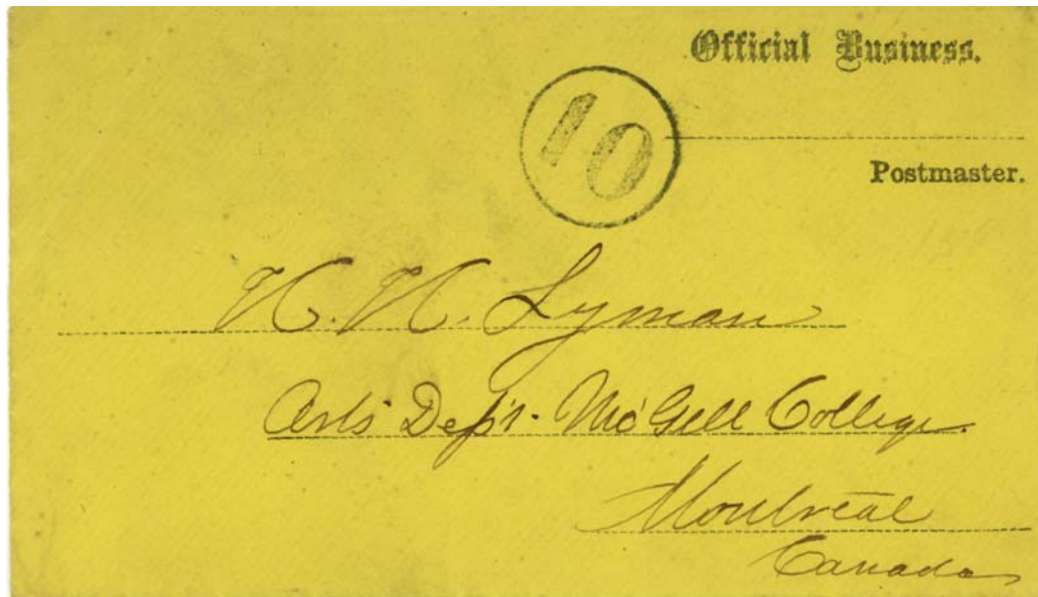 Official Business.
10
Postmaster.
H. H. Lyman
Arts Dep't. McGill College.
Montreal
Canada